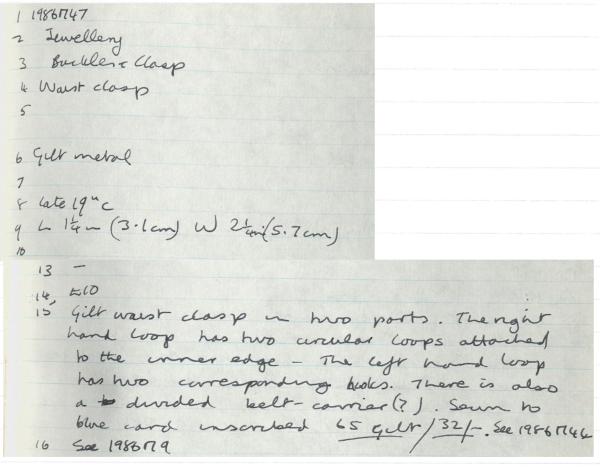 1 1986П47
2 Jewellery
3 Buckle & Clasp
4 Waist clasp
5
6 Gilt metal
7
8 Late 19th C
9 L 1¼ in (3.1cm) W 2¼ in (5.7cm)
10
13 —
14 £10
15 Gilt waist clasp in two parts. The right
hand loop has two circular loops attached
to the inner edge – The left hand loop
has two corresponding hooks. There is also
a divided belt-carrier(?). Sewn to
blue card inscribed 65 Gilt / 32/-. See 1986П44
16 See 1986П9